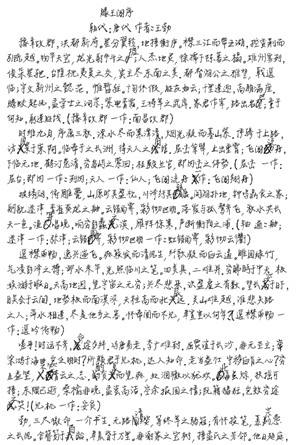 滕王阁序
朝代:唐代 作者:王勃
豫章故郡,洪都新府。星分翼轸,地接衡庐。襟三江而带五湖,控蛮荆而
引瓯越。物华天宝,龙光射牛斗之墟;人杰地灵,徐孺下陈蕃之榻。雄州雾列,
俊采星驰。台隍枕夷夏之交,宾主尽东南之美。都督阎公之雅望,棨戟遥
临;宇文新州之懿范,襜帷暂驻。十旬休假,胜友如云;千里逢迎,高朋满座。
腾蛟起凤,孟学士之词宗;紫电青霜,王将军之武库。家君作宰,路出名区;童子
何知,躬逢胜饯。(豫章故郡 一作:南昌故郡)
时维九月,序属三秋。潦水尽而寒潭清,烟光凝而暮山紫。俨骖騑于上路,
访风景于崇阿。临帝子之长洲,得天人之旧馆。层峦耸翠,上出重霄;飞阁
下临无地。鹤汀凫渚,穷岛屿之萦回;桂殿兰宫,即冈峦之体势。(层峦 一作:
层台;即冈 一作:列冈;天人 一作:仙人;飞阁
披绣闼,俯雕甍,山原旷其盈视,川泽纡其骇瞩。闾阎扑地,钟鸣鼎食之家;
舸舰
天一色。渔舟唱晚,响穷彭蠡之滨,雁阵惊寒,声断衡阳之浦。
遥襟甫畅,逸兴遄飞。爽籁发而清风生,纤歌凝而白云遏。睢园绿竹,
气凌彭泽之樽;邺水朱华,光照临川之笔。四美具,二难并。穷睇眄于中天,极
娱游于暇日。天高地迥,觉宇宙之无穷;兴尽悲来,识盈虚之有数。望长安于日
下,目吴会于云间。地势极而南溟深,天柱高而北辰远。关山难越,谁悲失路
之人;萍水相逢,尽是他乡之客。怀帝阍而不见,奉宣室以何年?
嗟乎!时运不齐,命途多舛。冯唐易老,李广难封。屈贾谊于长沙,非无圣主;窜
梁鸿于海曲,岂乏明时?所赖君子见机,达人知命。老当益壮,宁移白首之心?穷
且益坚,不坠青云之志。酌贪泉而觉爽,处涸辙以犹欢。北海虽赊,扶摇可
接;东隅已逝,桑榆非晚。孟尝高洁,空余报国之情;阮籍猖狂,岂效穷途
之哭!
勃,三尺微命,一介书生。无路请缨,等终军之弱冠;有怀投笔,慕宗悫
之长风。舍簪笏于百龄,奉晨昏于万里。非谢家之宝树,接孟氏之芳邻。